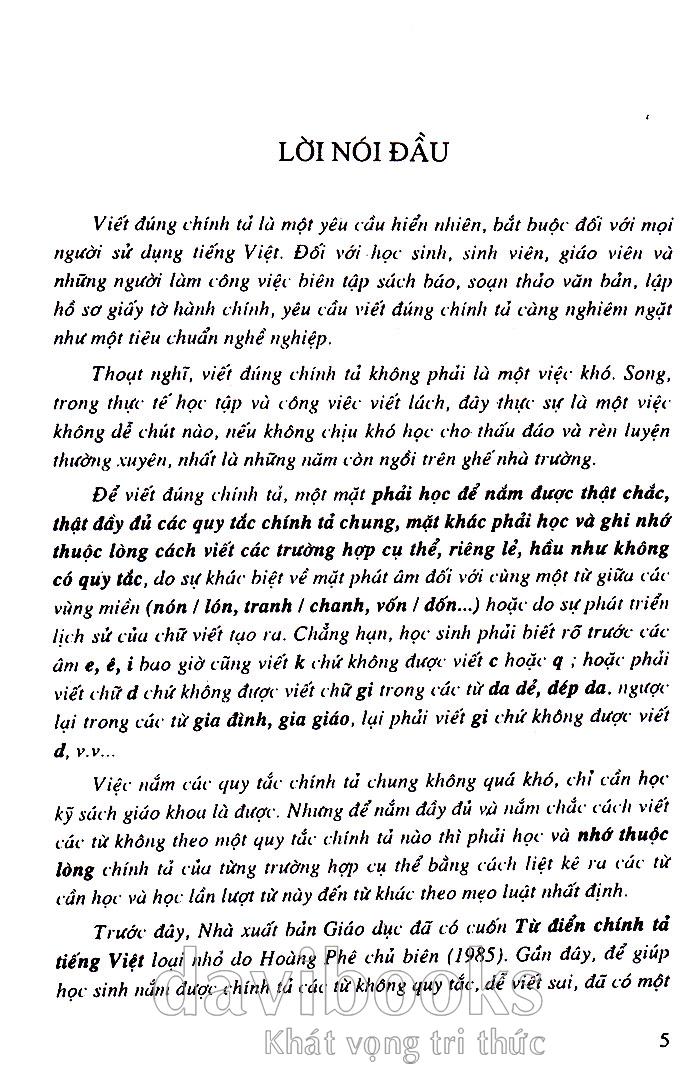 LỜI NÓI ĐẦU
Viết đúng chính tả là một yêu cầu hiển nhiên, bắt buộc đối với mọi
người sử dụng tiếng Việt. Đối với học sinh, sinh viên, giáo viên và
những người làm công việc biên tập sách báo, soạn thảo văn bản, lập
hồ sơ giấy tờ hành chính, yêu cầu viết đúng chính tả càng nghiêm ngặt
như một tiêu chuẩn nghề nghiệp.
Thoạt nghĩ, viết đúng chính tả không phải là một việc khó. Song,
trong thực tế học tập và công viêc viết lách, đây thực sự là một việc
không dễ chút nào, nếu không chịu khó học cho thấu đáo và rèn luyện
thường xuyên, nhất là những năm còn ngồi trên ghế nhà trường.
Để viết đúng chính tả, một mặt phải học để nắm được thật chắc,
thật đầy đủ các quy tắc chính tả chung, mặt khác phải học và ghi nhớ
thuộc lòng cách viết các trường hợp cụ thể, riêng lẻ, hầu như không
có quy tắc, do sự khác biệt về mặt phát âm đối với cùng một từ giữa các
vùng miền (nón / lón, tranh / chanh, vốn / dốn...) hoặc do sự phát triển
lịch sử của chữ viết tạo ra. Chẳng hạn, học sinh phải biết rõ trước các
âm e, ê, i bao giờ cũng viết k chứ không được viết c hoặc q ; hoặc phải
viết chữ d chứ không được viết chữ gi trong các từ da dẻ, dép da. ngược
lại trong các từ gia đình, gia giáo, lại phải viết gi chứ không được viết
d, v.v...
Việc nắm các quy tắc chính tả chung không quá khó, chỉ cần học
kỹ sách giáo khoa là được. Nhưng để nắm đầy đủ và nắm chắc cách viết
các từ không theo một quy tắc chính tả nào thì phải học và nhớ thuộc
lòng chính tả của từng trường hợp cụ thể bằng cách liệt kê ra các từ
cần học và học lần lượt từ này đến từ khác theo mẹo luật nhất định.
Trước đây, Nhà xuất bản Giáo dục đã có cuốn Từ điển chính tả
tiếng Việt loại nhỏ do Hoàng Phê chủ biên (1985). Gần đây, để giúp
học sinh nắm được chính tả các từ không quy tắc, dễ viết sai, đã có một
davibooks
Khát vọng tri thức
5